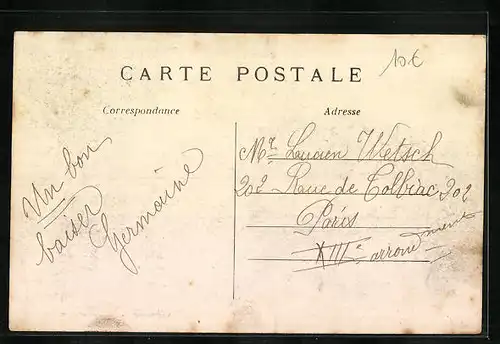 10€
CARTE POSTALE
Correspondance
Adresse
Un bon
baiser
Germaine
Mr. Lucien Wetsch
202 Rue de Tolbiac 202
Paris
XIIIe arrondi
ment